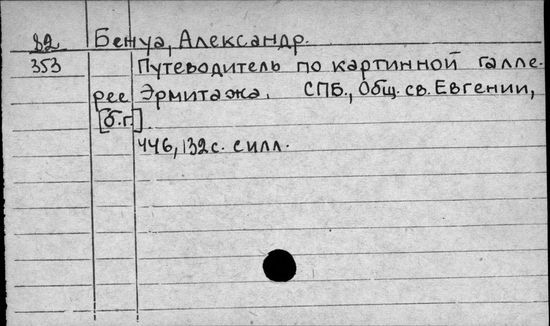 82 Бенуа, Александр.
353 Путеводитель по картинной галле-
рее Эрмитажа. СПБ., Общ. св. Евгении,
[б.г.].
446, 132 с. силл.